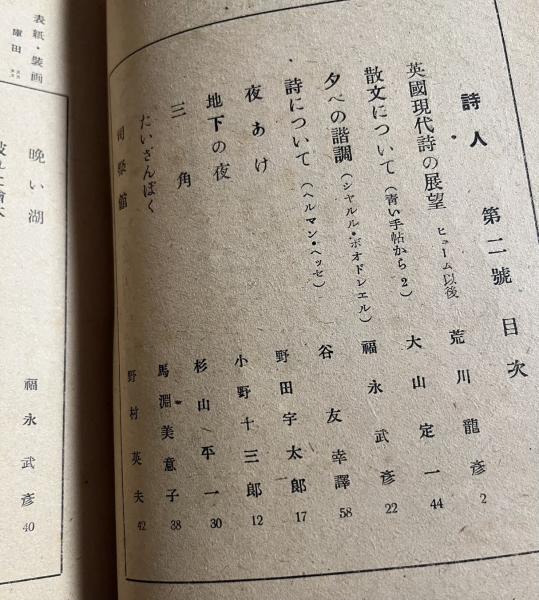 詩人 第二號 目次
英國現代詩の展望 ヒューム以後 荒川龍彦 2
散文について (青い手帖から2) 大山定一 44
夕べの諧調 (シャルル・ボオドレエル) 福永武彦 22
詩について (ヘルマン・ヘッセ) 谷友幸譯 58
夜あけ 野田宇太郎 17
地下の夜 小野十三郎 12
三角 杉山平一 30
たいざんぼく 馬淵美意子 38
司祭館 野村英夫 42
表紙・装画
庫田叕
晩い湖 福永武彦 40